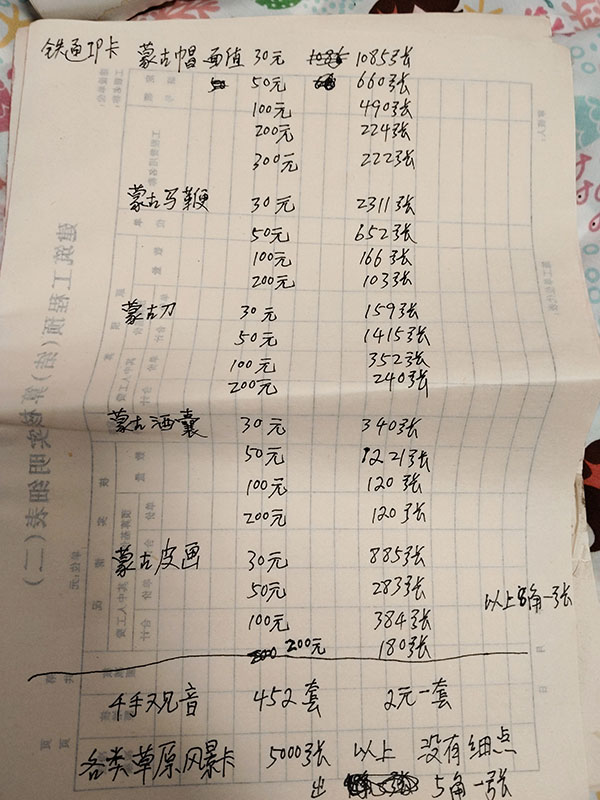 铁通IP卡 蒙古帽 面值 30元 1085张
50元 660张
100元 490张
200元 224张
300元 222张
蒙古马鞭 30元 2311张
50元 652张
100元 166张
200元 103张
蒙古刀 30元 159张
50元 1415张
100元 352张
200元 240张
蒙古酒囊 30元 340张
50元 1221张
100元 120张
200元 120张
蒙古皮画 30元 885张
50元 283张
以上8角一张
100元 384张
200元 180张
千手观音 452套 2元一套
各类草原风景卡 5000张 以上 没有细点
出 5角一张